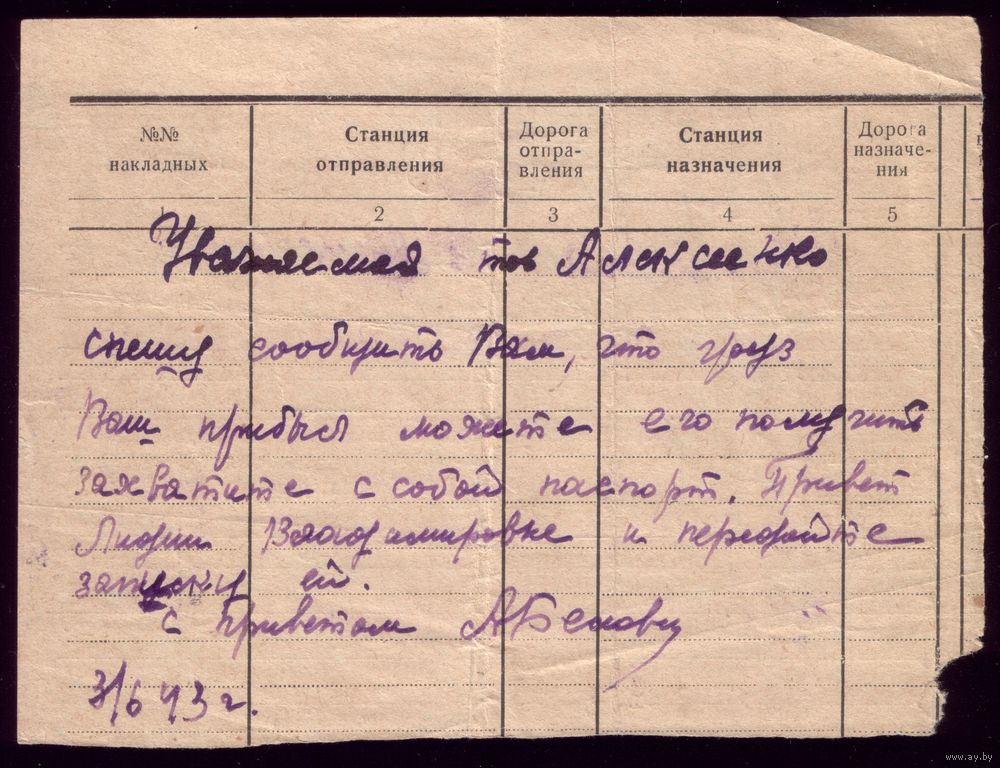 №№ накладных
Станция отправления
Дорога отпра-
вления
Станция назначения
Дорога назначе-
ния
1 2 3 4 5
Уважаемая тов Алексеенко
спешу сообщить Вам, что груз
Ваш прибыл можете его получить
захватите с собой паспорт. Привет
Лидии Владимировне и передайте
записку ей.
с приветом
3/6 43 г.
www.ay.by